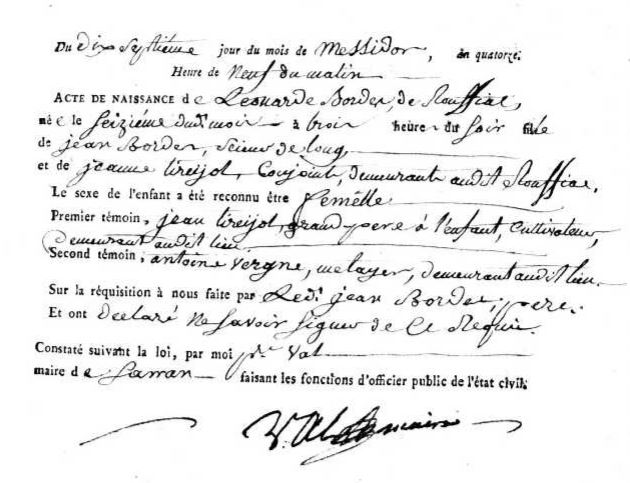 Du dix Septième jour du mois de Messidor, an quatorze.
Heure de Neuf du matin
ACTE DE NAISSANCE de Leonarde Bordes, de Rouffiac,
née le Seizième dudt mois à trois heures du soir fille
de jean Bordes, Scieur de long,
et de jeanne tireijol, Conjoints, demeurants audit Rouffiac.
Le sexe de l'enfant a été reconnu être femelle
Premier témoin, jean tireijol, grand pere à l'enfant, Cultivateur,
demeurant audit lieu
Second témoin, antoine Vergne, metayer, demeurant audit lieu.
Sur la réquisition à nous faite par Ledt jean Bordes, pere.
Et ont declaré Ne Savoir Signer de Ce Requis.
Constaté suivant la loi, par moi Val
maire de Sarran faisant les fonctions d'officier public de l'état civil.
Val maire